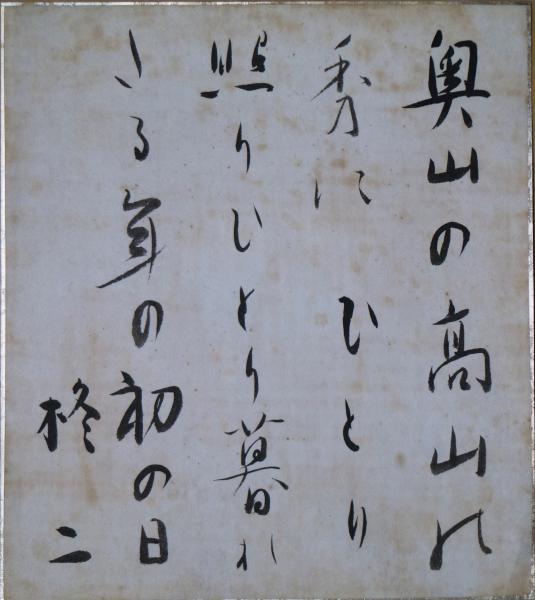 奥山の高山の
秀にひとり
照りひとり暮れ
いる年の初の日
柊二